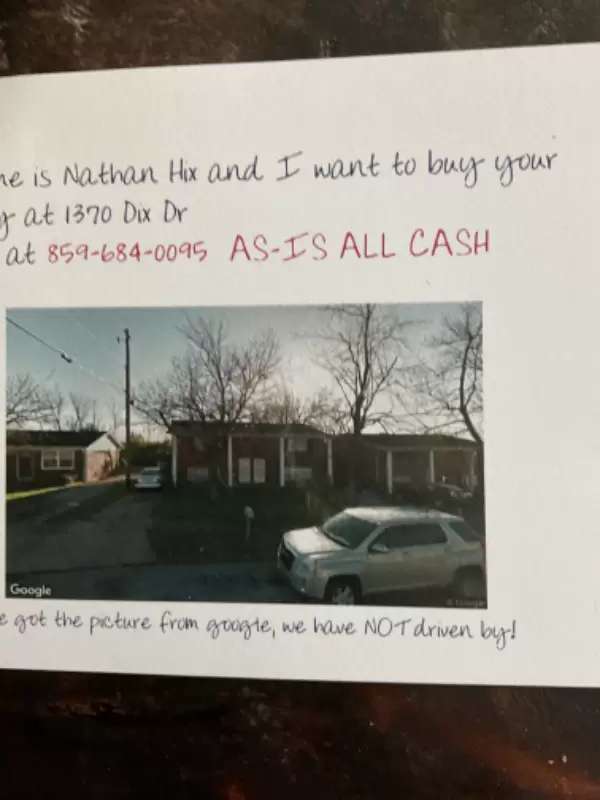 me is Nathan Hix and I want to buy your
y at 1370 Dix Dr
at 859-684-0095 AS-IS ALL CASH
Google
© Google
e got the picture from google, we have NOT driven by!